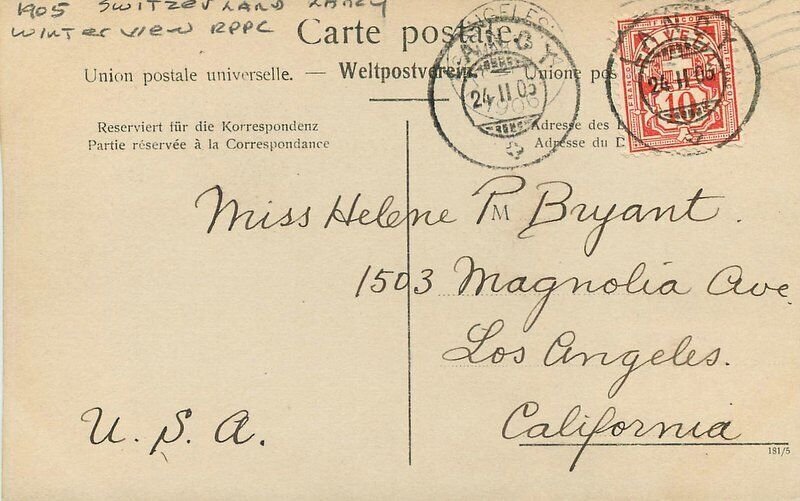 1905 SWITZERLAND LANCY
WINTER VIEW RPPC
Carte postale.
Union postale universelle. — Weltpostverein. Unione pos
Reserviert für die Korrespondenz
Partie réservée à la Correspondance
Adresse des
Adresse du D
LANCY
24.II.05
LANCY
24.II.05
FRANCO
10
Miss Helene P. Bryant.
M
1503 Magnolia Ave.
Los Angeles.
California
U. S. A.
181/5